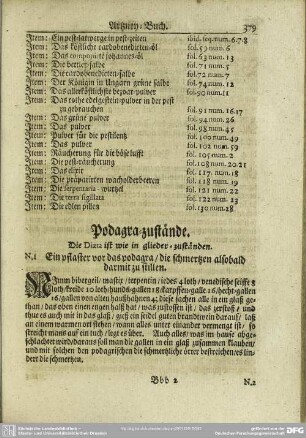 Artzney-Buch. 379
Item: Ein pest-latwerge in pest-zeiten
Item: Das köstliche cardobenedicten-öl fol. 59 num. 6
Item: Das componirte johannes-öl fol. 63 num. 13
Item: Die berber-salbe fol. 71 num. 5
Item: Die cardobenedicten-salbe fol. 72 num. 7
Item: Der Königin in Ungarn grüne salbe fol. 74 num. 12
Item: Das allerköstlichste bezoar-pulver fol. 90 num. 11
Item: Das rothe edelgestein-pulver in der pest
zu gebrauchen fol. 91 num. 16.17
Item: Das grüne pulver fol. 94 num. 26
Item: Das pulver fol. 98 num. 45
Item: Pulver für die pestilentz fol. 100 num. 49
Item: Das pulver fol. 102 num. 59
Item: Räucherung für die böse lufft fol. 105 num. 2
Item: Die pest-räucherung fol. 108 num. 20.21
Item: Das elixir fol. 117 num. 18
Item: Die präparirten wacholderbeeren fol. 118 num. 19
Item: Die serpentaria-wurtzel fol. 121 num. 22
Item: Die terra sigillata fol. 122 num. 25
Item: Die edlen pillen fol. 130 num. 28
Podagra-zustände.
Die Diæta ist wie in glieder-zuständen.
N.1 Ein pflaster vor das podagra / die schmertzen alsobald
darmit zu stillen.
Nimm bibergeil mastix / terpentin / iedes 4 loth / venedische seiffe 8
loth / kreide 10 loth / hunds-gallen 18 / karpffen-galle 16 / hecht-gallen
16 / gallen von alten haushahnen 4; diese sachen alle in ein glaß ge-
than; das oben einen engen halß hat /
es auch mit in das glaß / geuß ein seidel guten brandtwein darauf / laß
an einem warmen ort stehen / wann alles unter einander vermenget ist / so
streichet mans auf ein tuch / legt es über. Auch alles / was im abzuge
und mit solchen den podagrischen die schmertzliche örter bestreichen / es lin-
dert die schmertzen.
Bbb 2
N.2